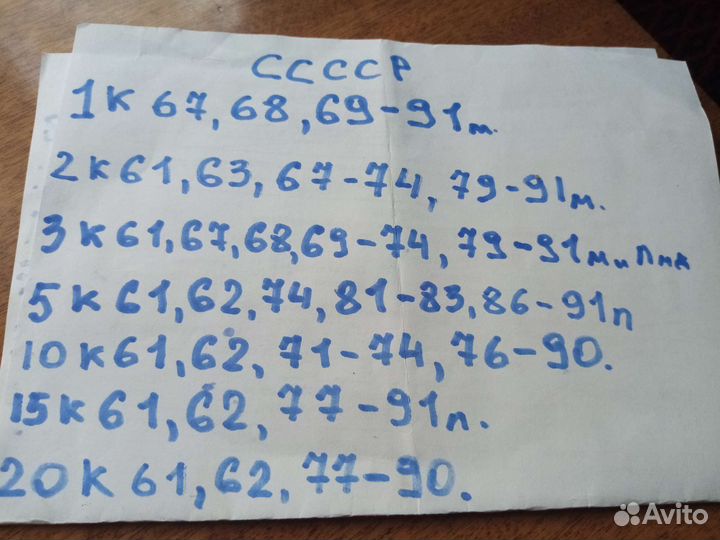 ССССР
1к 67, 68, 69-91м.
2к 61, 63, 67-74, 79-91м.
3к 61, 67, 68, 69-74, 79-91м и лмд
5к 61, 62, 74, 81-83, 86-91л
10к 61, 62, 71-74, 76-90.
15к 61, 62, 77-91л.
20к 61, 62, 77-90.
Avito